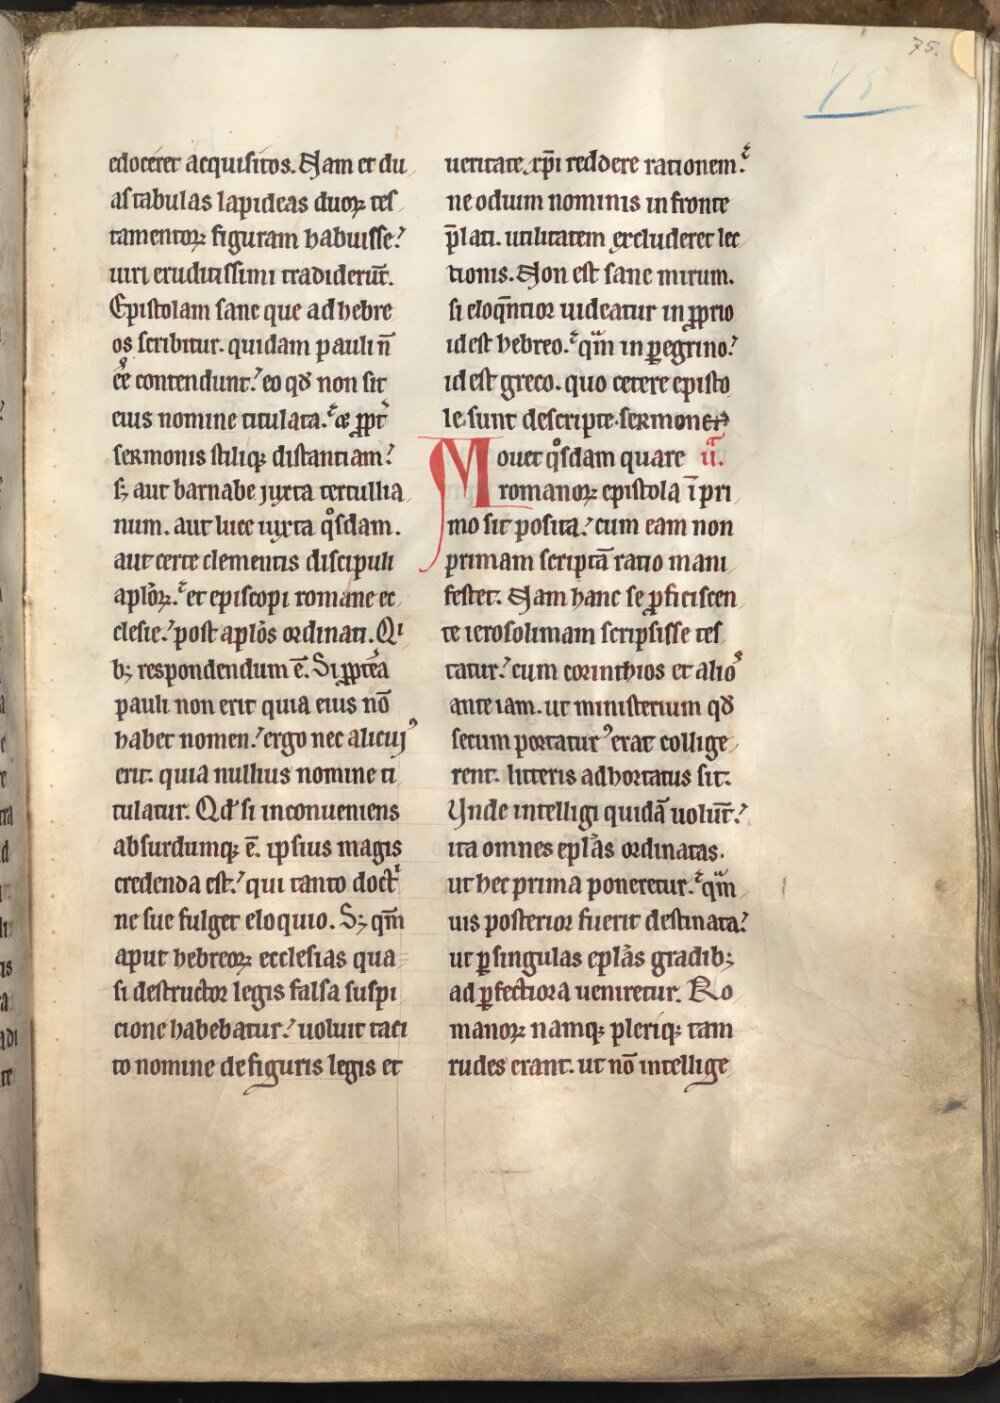 75.
75
edoceret acquisitos. Nam et du
as tabulas lapideas duoꝝ tes
tamentoꝝ figuram habuisse?
uiri eruditissimi tradiderūt.
Epistolam sane que ad hebre
os scribitur. quidam pauli n̄
ēe contendunt? eo qd̄ non sit
eius nomine titulata. ⁊ ꝓpt̛
sermonis stiliqꝫ distantiam?
sꝫ aut barnabe iuxta tertullia
num. aut luce iuxta qͦsdam.
aut certe clementis discipuli
aplōꝝ. et episcopi romane ec
clesie? post aplōs ordinati. Qͥ
bꝫ respondendum ē. Si ꝓpt̛ea
pauli non erit quia eius nō
habet nomen? ergo nec alicuiꝰ
erit. quia nullius nomine ti
tulatur. Qd̛ si inconueniens
absurdumqꝫ ē. ipsius magis
credenda est? qui tanto doct̛
ne sue fulget eloquio. Sꝫ qm̄
aput hebreoꝝ ecclesias qua
si destructor legis falsa suspi
cione habebatur? uoluit taci
to nomine de figuris legis et
ueritate xp̄i reddere rationem?
ne odium nominis in fronte
p̄lati. utilitatem excluderet lec
tionis. Non est sane mirum.
si eloqn̄tior uideatur in ꝓprio
id est hebreo. qᷓm in ꝑegrino?
id est greco. quo cetere episto
le sunt descripte sermone
Mouet qͦsdam quare u.ᷓ
romanoꝝ epistola ī pri
mo sit posita? cum eam non
primam scriptā ratio mani
festet. Nam hanc se ꝓficiscen
te ierosolimam scripsisse tes
tatur? cum corinthios et alioꝰ
ante iam. ut ministerium qd̄
secum portaturꝰ erat collige
rent. litteris adhortatus sit.
Vnde intelligi quidā uolūt?
ita omnes epl̄as ordinatas.
ut hec prima poneretur. qᷓm
uis posterior fuerit destinata?
ut ꝑ singulas epl̄as gradibꝫ
ad ꝑfectiora ueniretur. Ro
manoꝝ namqꝫ pleriqꝫ tam
rudes erant. ut nō intellige